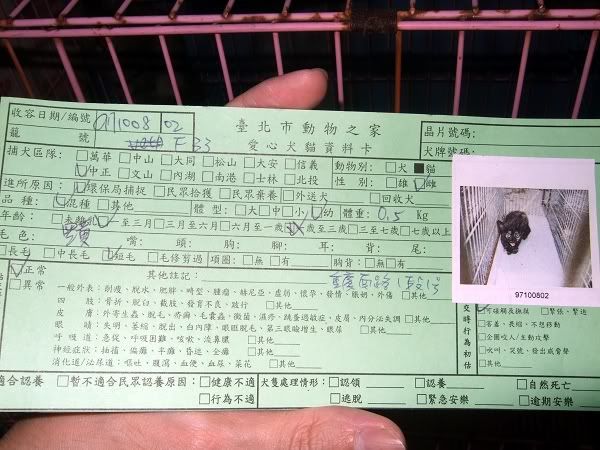 收容日期/編號 971008 02 臺北市動物之家 晶片號碼:
籠號 F B3 愛心犬貓資料卡 犬牌號碼:
捕犬區隊: □萬華 □中山 □大同 □松山 □大安 □信義 動物別: □犬 ■貓
☑中正 □文山 □內湖 □南港 □士林 □北投 性別: □雄 ☑雌
進所原因: ☑環保局捕捉 □民眾拾獲 □民眾棄養 □外送犬 □回收犬
品種: ☑混種 □其他 體型: □大 □中 □小 ☑幼 體重: 0.5 Kg
年齡: 至三月 □三月至六月 □六月至一歲 至三歲 □三至七歲 □七歲以上
毛色: 頭: 胸: 腳: 耳: 背: 尾:
□長毛 □中長毛 ☑短毛 □毛修剪過 項圈: □無 □有 胸背: □無 □有
☑正常 其他註記:
□異常 一般外表: 削瘦、脫水、肥胖、畸型、腫瘤、赫尼亞、虛弱、懷孕、發情、脹奶、外傷 □其他
四肢: 骨折、脫臼、截肢、發育不良、跛行 □其他
皮膚: 外寄生蟲、脫毛、疥癬、毛囊蟲、黴菌、濕疹、跳蚤過敏症、皮屑、內分泌失調 □其他
眼睛: 失明、萎縮、脫出、白內障、眼瞼脫毛、第三眼瞼增生、眼屎 □其他
呼吸道: 急促、呼吸困難、咳嗽、流鼻膿 □其他
神經症狀: 抽搐、偏癱、半癱、昏迷、全癱 □其他
消化道/泌尿道: 嘔吐、腹瀉、血便、血尿、菜花 □其他
97100802
□可碰觸及撫摸 □緊張、緊迫
□害羞、畏縮、不想移動
□企圖咬人/主動攻擊
□吠叫、哭號、發出威脅聲
□其他
適合認養 □暫不適合民眾認養原因: □健康不適 犬隻處理情形: □認領 □認養 □自然死亡
□行為不適 □逃脫 □緊急安樂 □逾期安樂